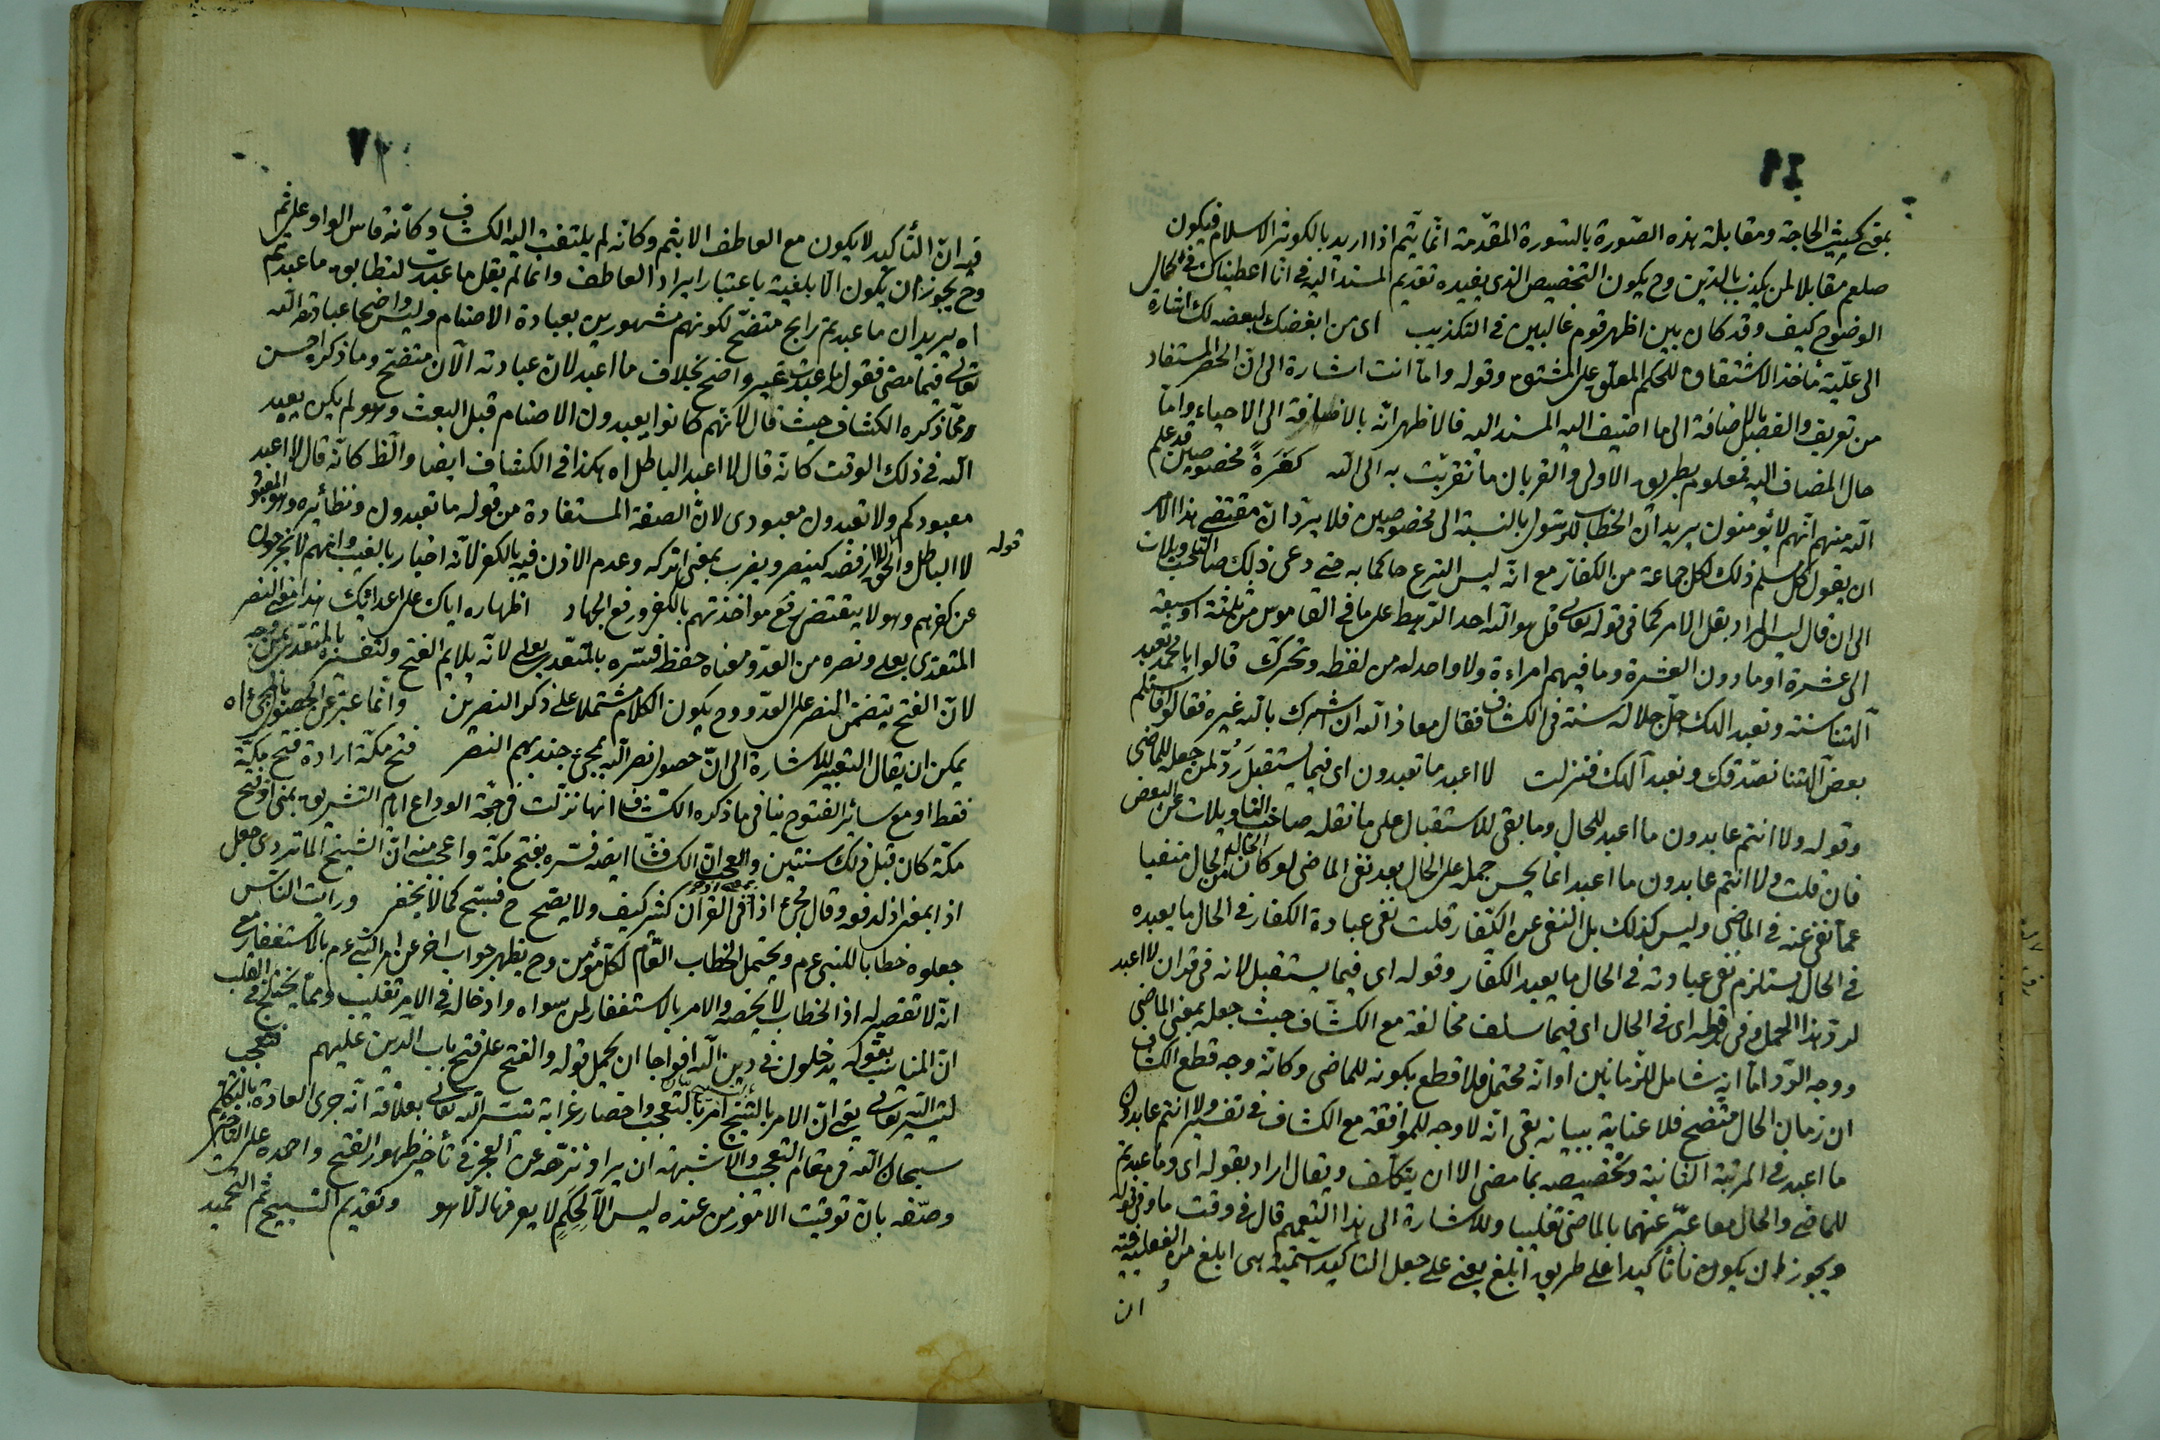 بمعنى كثيرة الحاجة ومقابلة هذه الصورة بالسورة المقدمة انما يتم اذا اريد بالكوثر الاسلام فيكون
صلعم مقابلا لمن يكذب بالدين وح يكون التخصيص الذى يفيده تقديم المسند اليه فى انا اعطيناك فى كمال
الوضوح كيف وقد كان بين اظهر قوم غالبين فى التكذيب اى من ابغضك لبغضه لك اشارة
الى علية مأخذ الاشتقاق للحكم المعلق على المشتق وقوله واما انت اشارة الى ان الحصر المستفاد
من تعريف والفصل بالاضافة الى ما اضيف اليه المسند اليه فالاظهر انه بالاضافة الى الاحياء واما
حال المضاف اليه فمعلوم بطريق الاولى والقربان ما تقربت به الى الله كفرة مخصوصين قد علم
الله منهم انهم لا يؤمنون يريد ان الخطاب للرسول بالنسبة الى مخصوصين فلا يرد ان مقتضى هذا الامر
ان يقول كل مسلم ذلك لكل جماعة من الكفار مع انه ليس الشرع حاكما به حتى دعى ذلك صاحب التاويلات
الى ان قال ليس المراد بقل الامر كما فى قوله تعالى قل هو الله احد الرهط على ما فى القاموس من ثلثة او سبعة
الى عشرة او ما دون العشرة وما فيهم امراءة ولا واحد له من لفظه وتحرك قالوا يا محمد تعبد
آلهتنا سنة ونعبد الهك جل جلاله سنة فى الكشاف فقال معاذ الله ان اشرك بالله غيره فقالوا فاستلم
بعض آلهتنا نصدقك ونعبد آلهك فنزلت لا اعبد ما تعبدون اى فيما يستقبل رد لمن جعله للماضى
وقوله ولا انتم عابدون ما اعبد للحال وما بقى للاستقبال على ما نقله صاحب التاويلات عن البعض
فان قلت ولا انتم عابدون ما اعبد انما يحسن حمله على الحال بعد نفى الماضى لو كان الحال منفيا
عما نفى عنه فى الماضى وليس كذلك بل النفى عن الكفار قلت نفى عبادة الكفار فى الحال ما يعبده
فى الحال يستلزم نفى عبادته فى الحال ما يعبد الكفار وقوله اى فيما يستقبل لانه فى قران لا اعبد
لرد هذا الحمل وفى قوله اى فى الحال اى فيما سلف مخالفة مع الكشاف حيث جعله بمعنى الماضى
ووجه الرد اما انه شامل للزمانين او انه محتمل فلا قطع بكونه للماضى وكانه وجه قطع الكشاف
ان زمان الحال متضح فلا عناية ببيانه بقى انه لا وجه للموافقة مع الكشاف فى تفسير ولا انتم عابدون
ما اعبد فى المرتبة الثانية وتخصيصه بما مضى الا ان يتكلف ويقال اراد بقوله اى وما عبدتم
للماضى والحال معا عبر عنهما بالماضى تغليبا وللاشارة الى هذا التعميم قال فى وقت ما وفى قوله
ويجوز ان يكونا تأكيدا على طريق ابلغ يعنى على جعل التاكيد اسمية هى ابلغ من الفعلية فيه
ان
فيه ان التأكيد لا يكون مع العاطف الا بثم وكانه لم يلتفت اليه الكشاف وكانه قاس الواو على ثم
وح يجوز ان يكون الابلغية باعتبار ايراد العاطف وانما لم يقل ما عبدت لتطابق ما عبدتم
اه يريد ان ما عبدتم رابح متضح لكونهم مشهورين بعبادة الاصنام وليس واضحا عبادته الله
تعالى فيما مضى فقول ما عبدت غير واضح بخلاف ما اعبد لان عبادته الآن متضح وما ذكره احسن
مما ذكره الكشاف حيث قال لانهم كانوا يعبدون الاصنام قبل البعث وهو لم يكن يعبد
الله فى ذلك الوقت كانه قال لا اعبد الباطل اه هكذا فى الكشاف ايضا والظ كانه قال لا اعبد
معبودكم ولا تعبدون معبودى لان الصفة المستفادة من قوله ما تعبدون ونظائره وهو المعبود
قوله
لا الباطل والحق الا رفضه كينصر ويضرب بمعنى اتركه وعدم الاذن فيه بالكفر لانه اخبار بالغيب وانهم لا يخرجون
عن كفرهم وهو لا يقتضى رفع مواخذتهم بالكفر ورفع الجهاد اظهاره اياك على اعدائك هذا معنى النصر
المتعدى بعلى ونصره من العدو معناه حفظ فسره بالمتعدى بعلى لانه يلايم الفتح ولنفسره بالمتعدى بمن وجه
لان الفتح يتضمن النصر على العدو وح يكون الكلام مشتملا على ذكر النصرين وانما عبر عن الحصول بالمجئ اه
يمكن ان يقال التعبير للاشارة الى ان حصول نصر الله بمجئ جند بهم النصر فتح مكة ارادة فتح مكة
فقط او مع سائر الفتوح ينافى ما ذكره الكشاف انها نزلت فى حجة الوداع ايام التشريق بمنى اذ فتح
مكة كان قبل ذلك سنتين والعجب ان الكشاف ايضه فسره بفتح مكة واعجب منه ان الشيخ الماتريدى جعل
اذا بمعنى اذ لدفعه وقال مجئ اذا فى القران كثير كيف ولا يصح ح فسبح كما لا يخفى ورايت الناس
جعلوه خطابا للنبى عم ويحتمل الخطاب العام لكل مؤمن وح يظهر جواب اخر عن امر النبى عم بالاستغفار مع
انه لا تقصير له اذ الخطاب لا يخصه والامر بالاستغفار لمن سواه وادخاله فى الامر تغليب ومما يختلج فى القلب
ان المناسب بقوله يدخلون فى دين الله افواجا ان يحمل قوله والفتح على فتح باب الدين عليهم فتعجب
لتيسير الله تعالى يعنى ان الامر بالتسبيح امر بالتعجب واحضار غرابة تيسير الله تعالى بعلاقة انه جرى العادة بالتكلم
سبحان الله فى مقام التعجب والاشبه ان يراد نزهه عن العجز فى تأخير ظهور الفتح واحمده على التاخير
وصفه بان توقيت الامور من عنده ليس الا لحكم لا يعرفها الا هو وتقديم التسبيح ثم التحميد